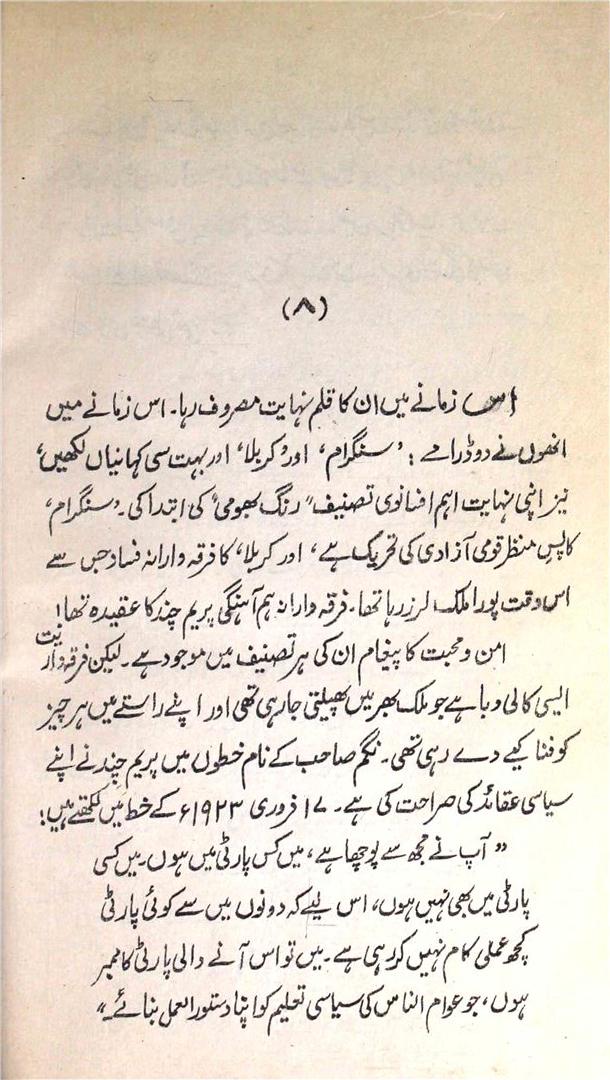 (۸)
اس زمانے میں ان کا قلم نہایت مصروف رہا۔ اس زمانے میں
انھوں نے دو ڈرامے : ’سنگرام‘ اور ’کربلا‘ اور بہت سی کہانیاں لکھیں،
نیز اپنی نہایت اہم افسانوی تصنیف ”رنگ بھومی‘ کی ابتدا کی۔ ’سنگرام‘
کا پس منظر قومی آزادی کی تحریک ہے، اور ’کربلا‘ کا فرقہ وارانہ فساد جس سے
اس وقت پورا ملک لرز رہا تھا۔ فرقہ وارانہ ہم آہنگی پریم چند کا عقیدہ تھا!
امن و محبت کا پیغام ان کی ہر تصنیف میں موجود ہے۔ لیکن فرقہ واریت
ایسی کالی وبا ہے جو ملک بھر میں پھیلتی جا رہی تھی اور اپنے راستے میں ہر چیز
کو فنا کیے دے رہی تھی۔ نگم صاحب کے نام خطوں میں پریم چند نے اپنے
سیاسی عقائد کی صراحت کی ہے۔ ۱۷ فروری ۱۹۲۳ء کے خط میں لکھتے ہیں:
”آپ نے مجھ سے پوچھا ہے، میں کس پارٹی میں ہوں۔ میں کسی
پارٹی میں بھی نہیں ہوں، اس لیے کہ دونوں میں سے کوئی پارٹی
کچھ عملی کام نہیں کر رہی ہے۔ میں تو اس آنے والی پارٹی کا ممبر
ہوں، جو عوام الناس کی سیاسی تعلیم کو اپنا دستور العمل بنائے۔“